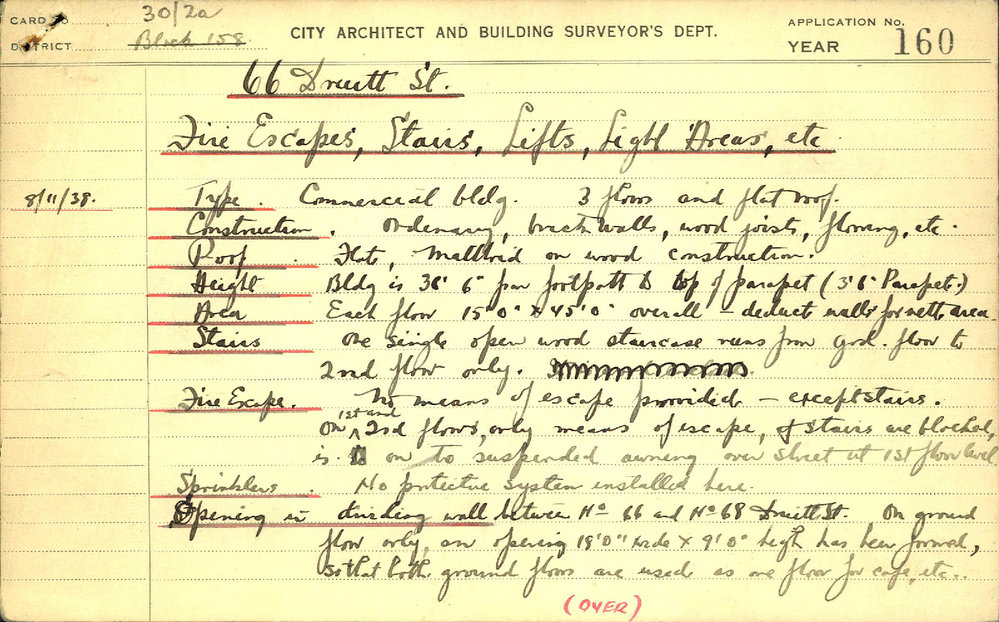 CARD 30/2a CITY ARCHITECT AND BUILDING SURVEYOR'S DEPT. APPLICATION No.
DISTRICT Block 158 YEAR 160
66 Druitt St.
Fire Escapes, Stairs, Lifts, Light Areas, etc
8/11/38. Type. Commercial bldg. 3 floors and flat roof.
Construction. Ordenary, brick walls, wood joists, flooring, etc.
Roof. Flat, Malthoid on wood construction.
Height Bldg is 36' 6" from footpath to top of parapet (3'6" Parapet.)
Area Each floor 15'0" x 45'0" overall – deduct walls for nett area
Stairs One single open wood staircase runs from grd. floor to
2nd floor only.
Fire Escape. No means of escape provided – except stairs.
On 1st and 2nd floors, only means of escape, if stairs are blocked,
is on to suspended awning over street at 1st floor level
Sprinklers. No protective system installed here.
Opening in dividing wall between No 66 and No 68 Druitt St. On ground
floor only, an opening 18'0" wide x 9'0" high has been formed,
so that both ground floors are used as one floor for cafe, etc..
(OVER)